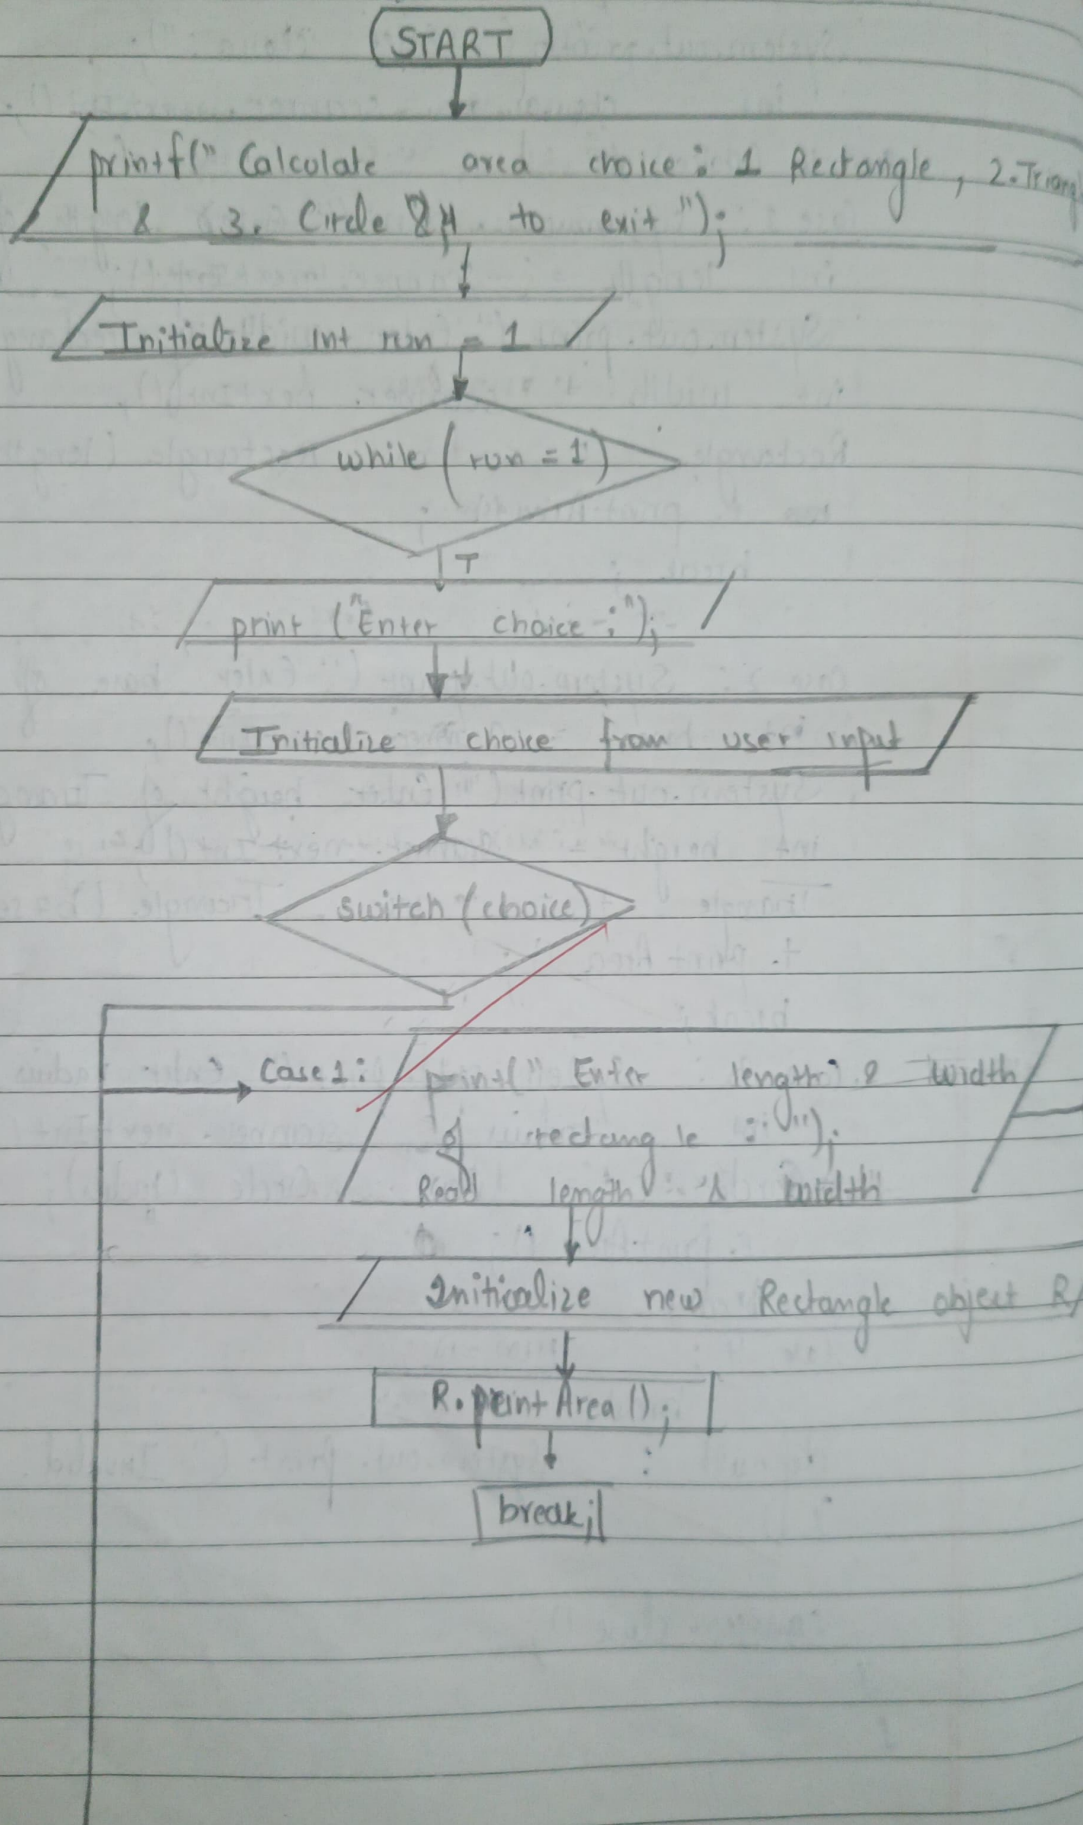 START
printf(" Calcolate area choice: 1 Rectangle, 2. Triangl
& 3. Circle & 4 to exit ");
Initialize int run = 1
while (run = 1)
T
print ("Enter choice :");
Initialize choice from user input
switch (choice)
Case 1: print(" Enter length & width
of rectangle :");
Read length & width
Initialize new Rectangle object R
R.printArea();
break;